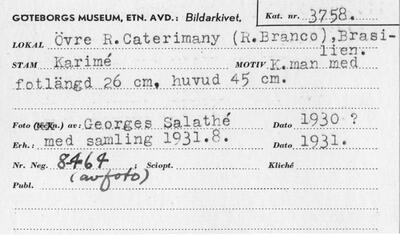 GÖTEBORGS MUSEUM, ETN. AVD.: Bildarkivet, Kat. nr. 3758.
LOKAL Övre R.Caterimany (R.Branco),Brasi-
lien.
STAM Karimé MOTIV K.man med
fotlängd 26 cm, huvud 45 cm.
Foto (Tekn.) av: Georges Salathé Dato 1930 ?
Erh.: med samling 1931.8. Dato 1931.
Nr. Neg. 8464 ; Sciopt. Kliché
Publ. (avfoto)